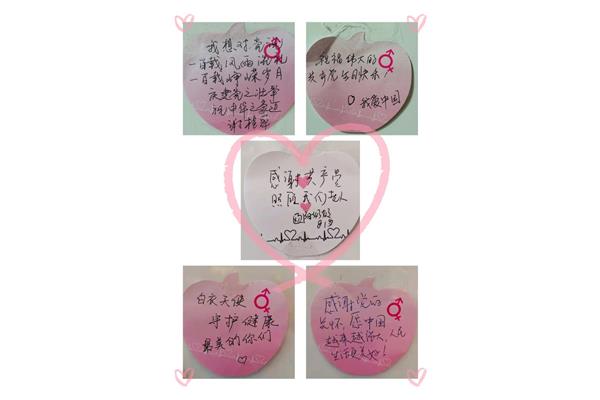 我想对党说
一百载风雨洗礼
一百载峥嵘岁月
庆建党之壮举
祝中华之豪迈
祝福伟大的
共产党生日快乐
我爱中国
感谢共产党
照顾我们老人
白衣天使
守护健康
最美的你们
感谢党的
关怀,愿中国
越来越伟大,人民
生活更美好!